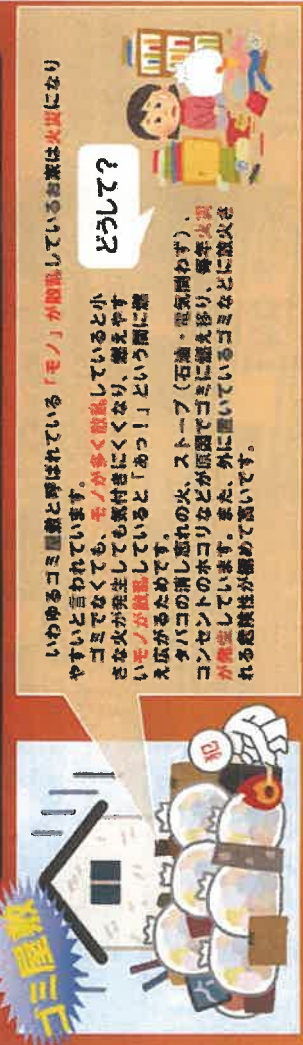 ゴミ屋敷
いわゆるゴミ屋敷と呼ばれている「モノ」が散乱しているお家は火災になり
やすいと言われています。
どうして？
ゴミでなくても、モノが多く散乱していると小
さな火が発生しても気付きにくくなり、燃えやす
いモノが散乱していると「あっ！」という間に燃
え広がるためです。
タバコの消し忘れの火、ストーブ（石油・電気問わず）、
コンセントのホコリなどが原因でゴミに燃え移り、毎年火災
が発生しています。また、外に置いているゴミなどに放火さ
れる危険性が極めて高いです。
犯